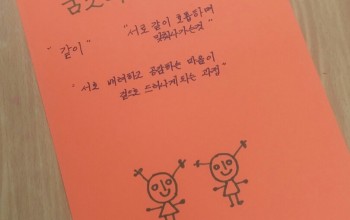 "서로 같이 호흡하며
" 같이 "
맞춰나가는것"
" 서로 배려하고 공감하는 마음이
겉으로 드러나게 되는 과정 "